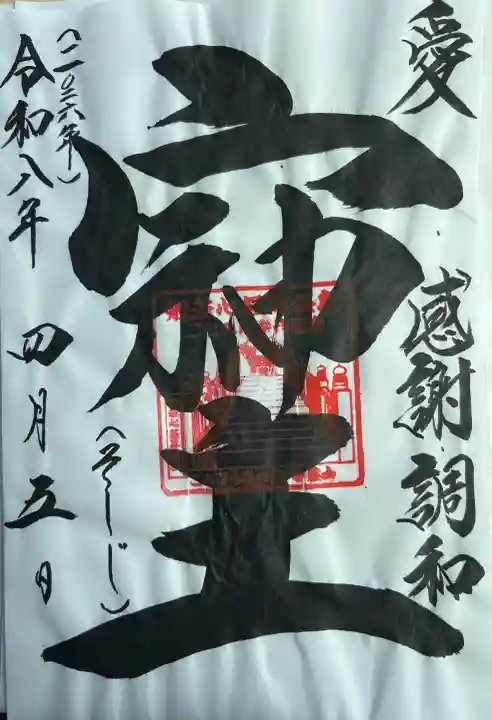 愛・感謝・調和
(そしじ)
(二〇二六年)
令和八年四月五日